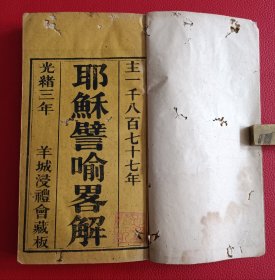 主一千八百七十七年
耶穌譬喻畧解
光緒三年
羊城浸禮會藏板